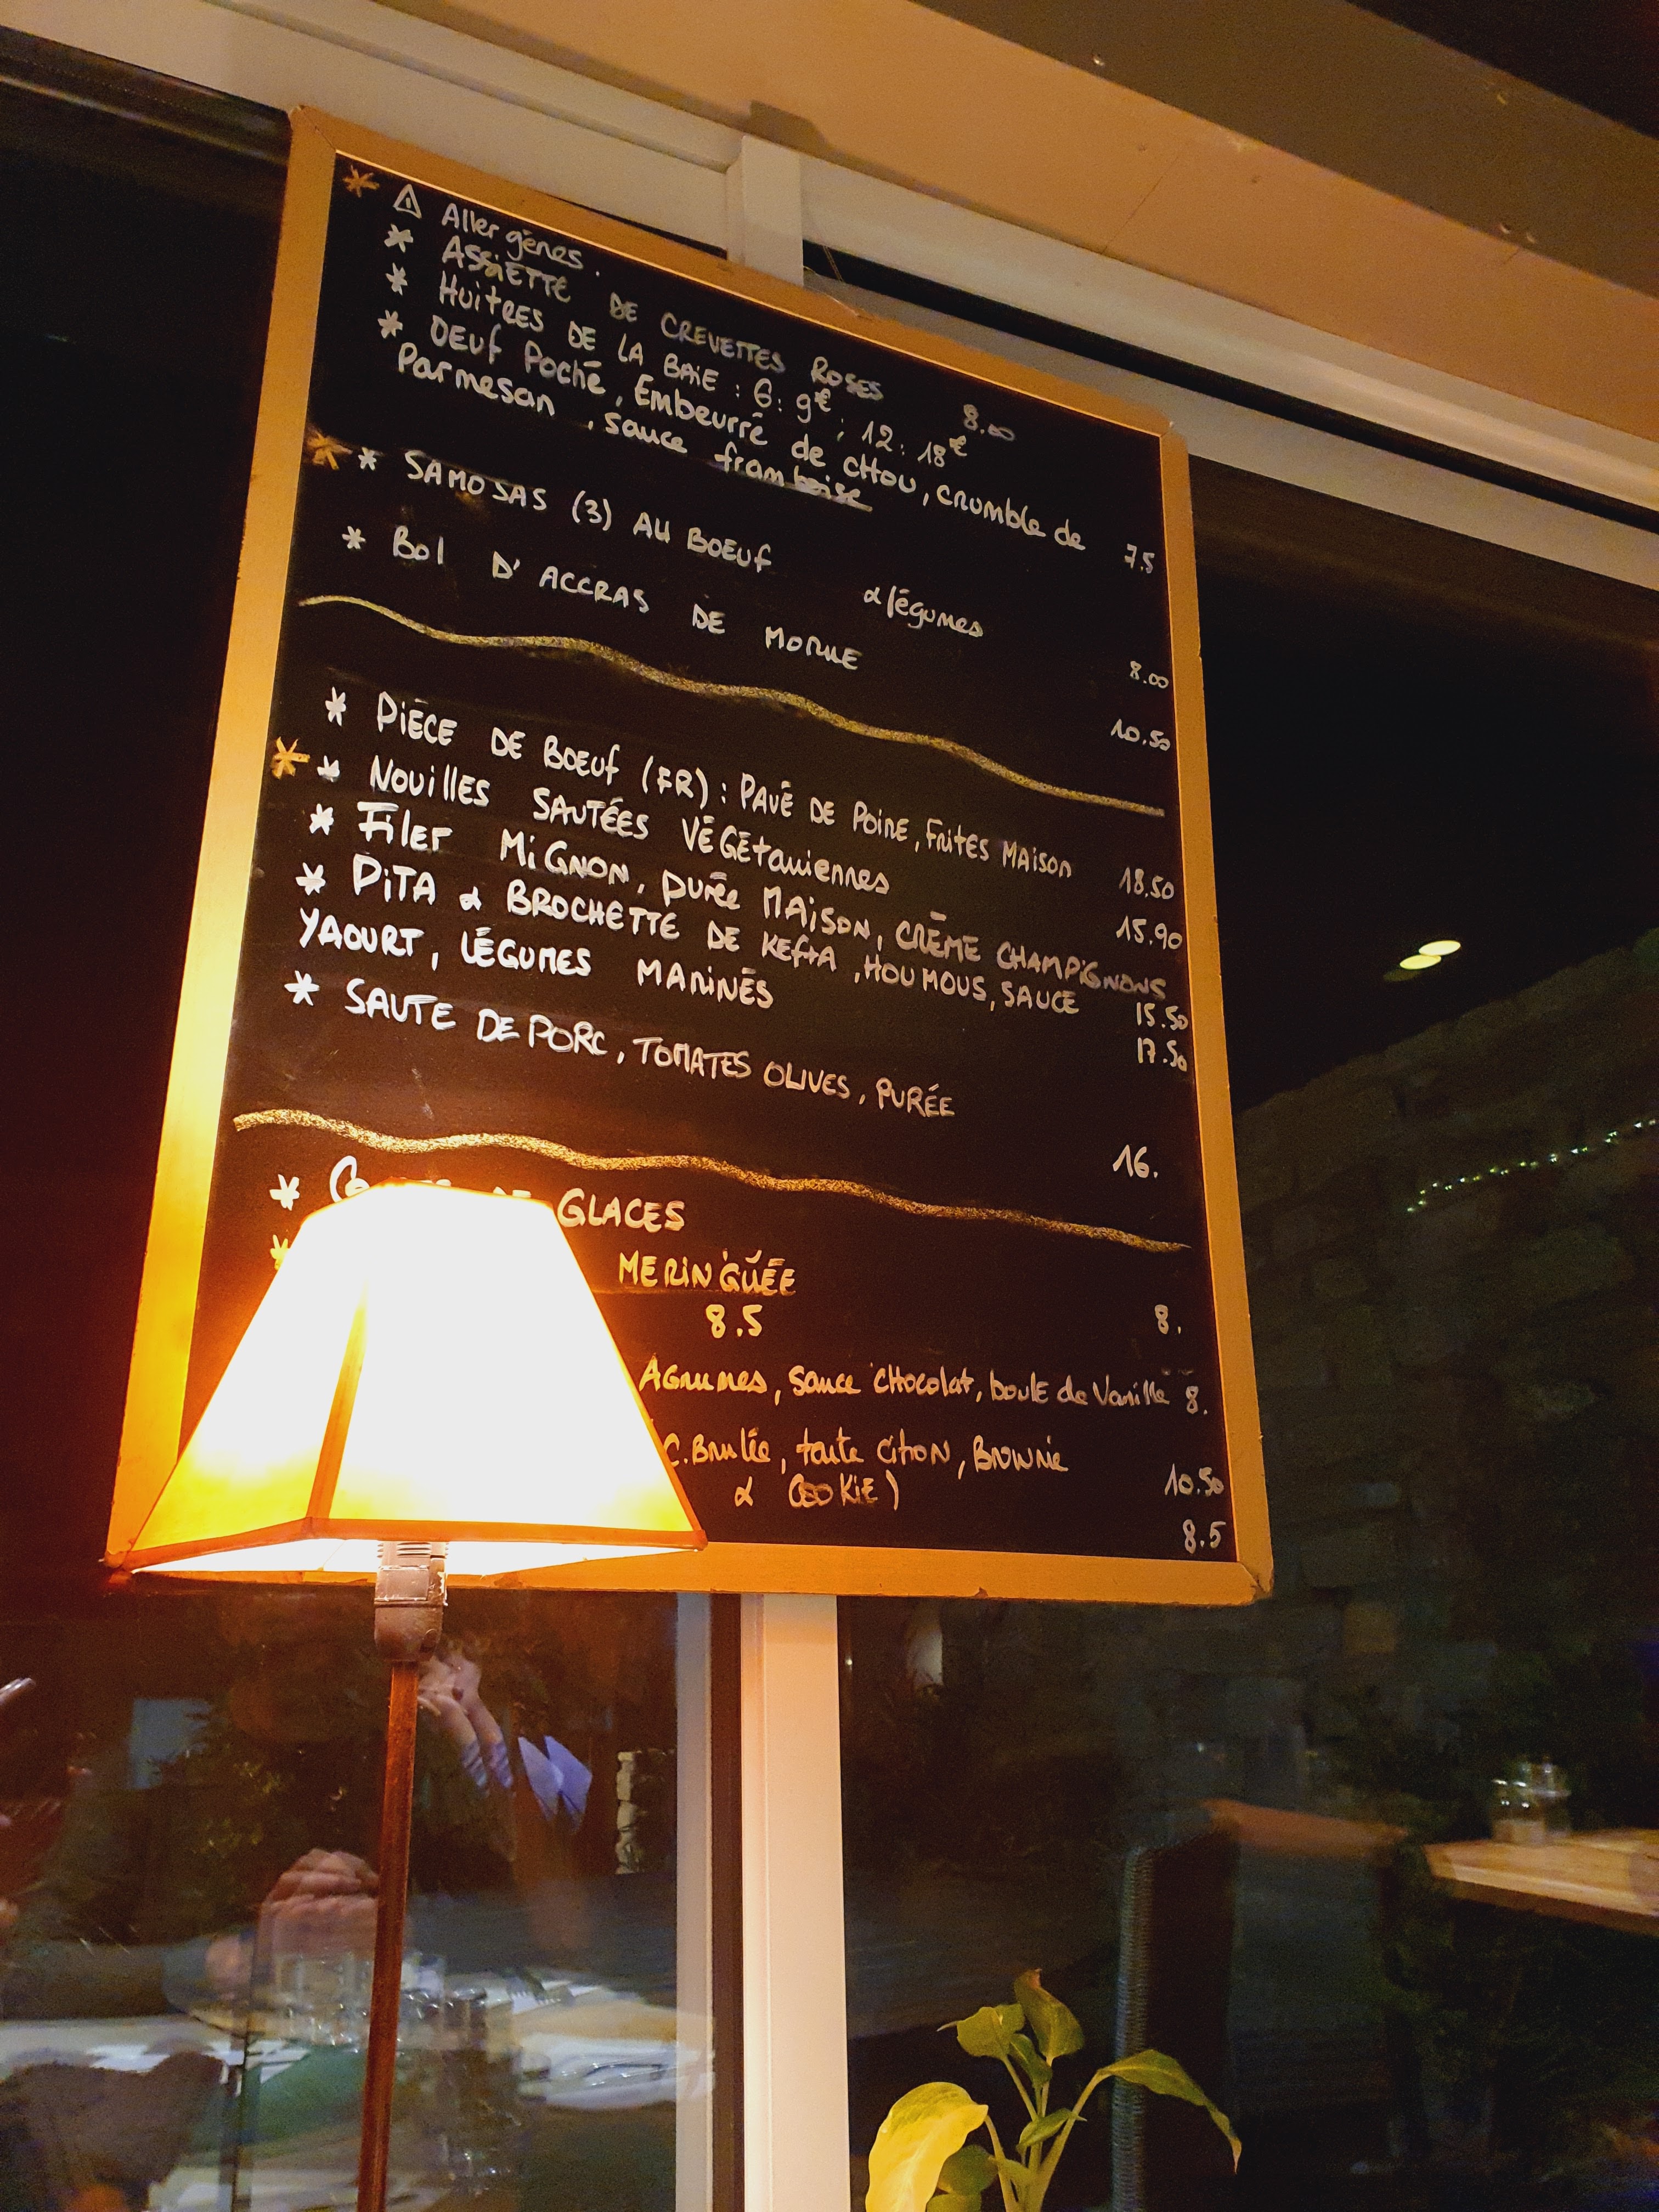 * ⚠ Allergènes.
* ASSIETTE DE CREVETTES ROSES 8.00
* HUITRES DE LA BAIE : 6: 9€ ; 12: 18€
* OEUF Poché, Embeurré de CHOU, crumble de
Parmesan, sauce framboise 7.5
* * SAMOSAS (3) AU BOEUF & légumes 8.00
* Bol D'ACCRAS DE MORUE 10.50
* PIÈCE DE BOEUF (FR) : PAVÉ DE POIRE, FRITES MAISON 18.50
* * NOUILLES SAUTÉES VÉGÉTARIENNES 15.90
* FILET MIGNON, PURÉE MAISON, CRÈME CHAMPIGNONS 15.50
* PITA & BROCHETTE DE KEFTA, HOUMOUS, SAUCE 17.50
YAOURT, LÉGUMES MARINÉS
* SAUTE DE PORC, TOMATES OLIVES, PURÉE 16.
* GLACES
* MERINGUÉE 8.
8.5
AGRUMES, sauce CHocolat, boule de Vanille 8.
C.Brulée, tarte Citron, BROWNIE 10.50
& COOKIE) 8.5